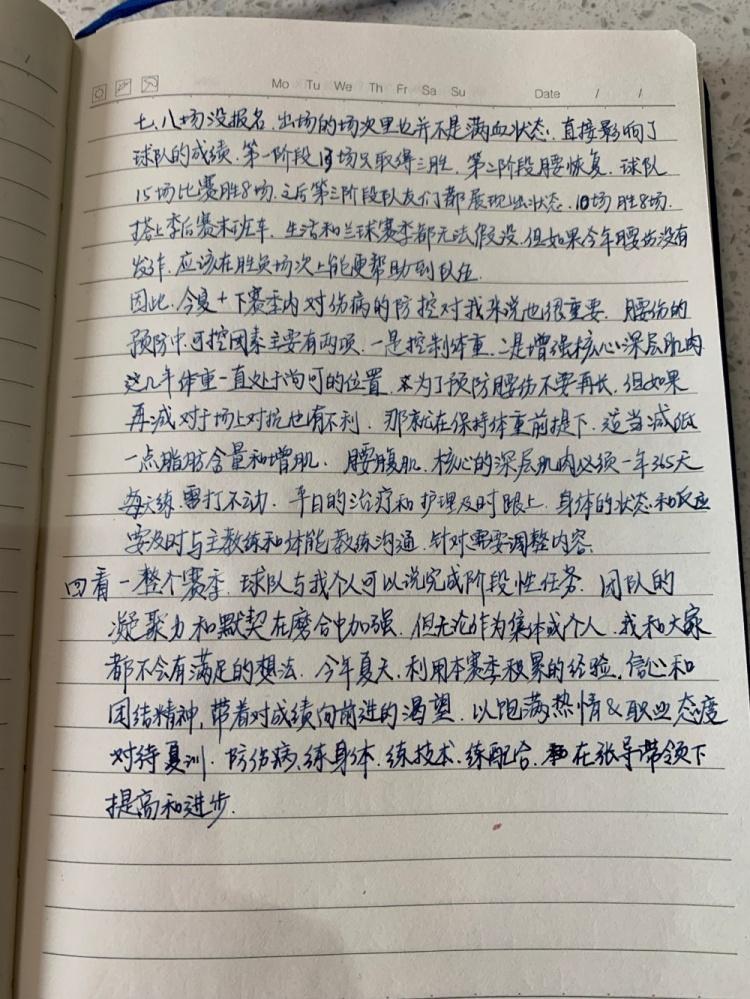 Mo Tu We Th Fr Sa Su Date / /
七、八场没报名.出场的场次里也并不是满血状态.直接影响了
球队的成绩.第一阶段13场只取得三胜.第二阶段腰恢复.球队
15场比赛胜8场.之后第三阶段队友们都展现出状态.10场胜8场.
搭上季后赛末班车.生活和兰球赛季都无法假设.但如果今年腰伤没有
发作.应该在胜负场次上能更帮助到队伍.
因此.今夏+下赛季内对伤病的防控对我来说也很重要.腰伤的
预防中.可控因素主要有两项.一是控制体重.二是增强核心深层肌肉
这几年体重一直处于尚可的位置.为了预防腰伤不要再长.但如果
再减对于场上对抗也有不利.那就在保持体重前提下.适当减低
一点脂肪含量和增肌.腰腹肌.核心的深层肌肉必须一年365天
每天练.雷打不动.平日的治疗和护理及时跟上.身体的状态和反应
要及时与主教练和体能教练沟通.针对需要调整内容.
四看一整个赛季.球队与我个人可以说完成阶段性任务.团队的
凝聚力和默契在磨合中加强.但无论作为集体或个人.我和大家
都不会有满足的想法.今年夏天.利用本赛季积累的经验.信心和
团结精神,带着对成绩向前进的渴望.以饱满热情&职业态度
对待夏训.防伤病、练身体.练技术.练配合.在张导带领下
提高和进步.